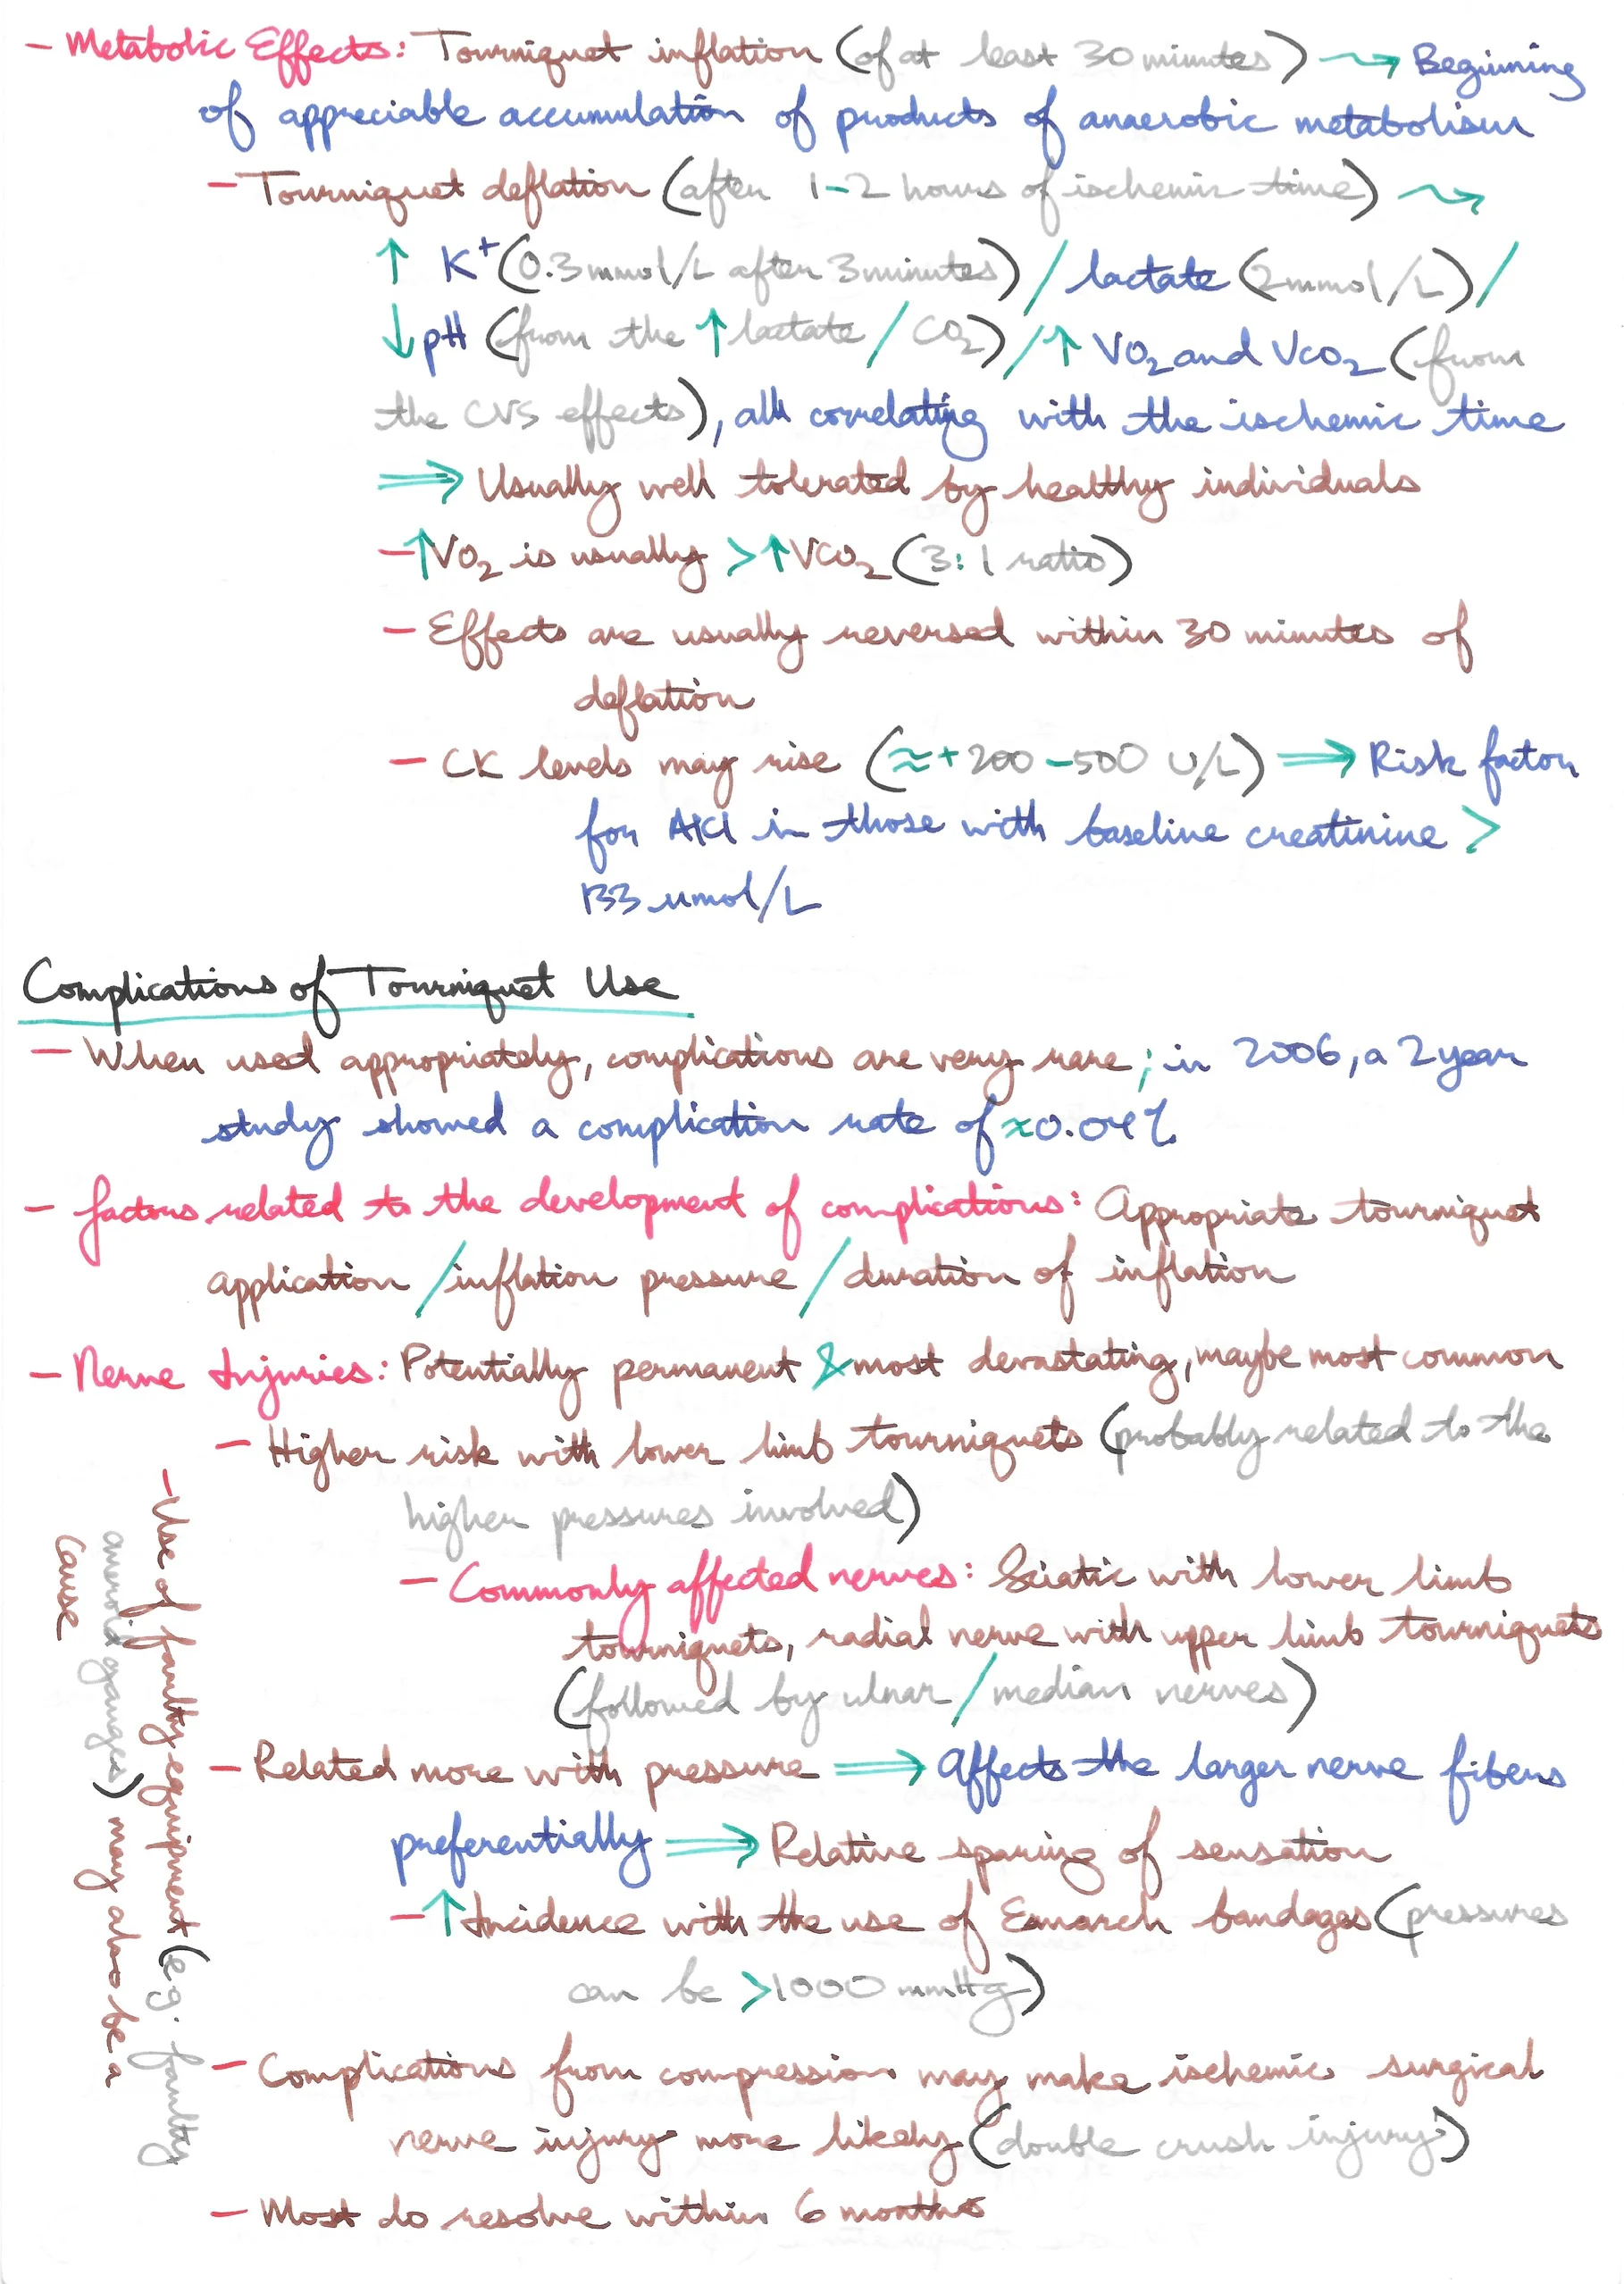 - Metabolic Effects: Tourniquet inflation (of at least 30 minutes) ⇝ Beginning
of appreciable accumulation of products of anaerobic metabolism
- Tourniquet deflation (after 1-2 hours of ischemic time) ⇝
↑ K⁺ (0.3 mmol/L after 3 minutes) / lactate (2 mmol/L) /
↓ pH (from the ↑ lactate / CO₂) / ↑ VO₂ and VCO₂ (from
the CVS effects), all correlating with the ischemic time
⟹ Usually well tolerated by healthy individuals
- ↑ VO₂ is usually > ↑ VCO₂ (3:1 ratio)
- Effects are usually reversed within 30 minutes of
deflation
- CK levels may rise (≈ + 200 - 500 U/L) ⟹ Risk factor
for AKI in those with baseline creatinine >
133 umol/L
Complications of Tourniquet Use
- When used appropriately, complications are very rare; in 2006, a 2 year
study showed a complication rate of ≈0.04%
- factors related to the development of complications: Appropriate tourniquet
application / inflation pressure / duration of inflation
- Nerve Injuries: Potentially permanent & most devastating, maybe most common
- Higher risk with lower limb tourniquets (probably related to the
higher pressures involved)
- Commonly affected nerves: Sciatic with lower limb
tourniquets, radial nerve with upper limb tourniquets
(followed by ulnar / median nerves)
- Related more with pressure ⟹ Affects the larger nerve fibers
preferentially ⟹ Relative sparing of sensation
- ↑ Incidence with the use of Esmarch bandages (pressures
can be >1000 mmHg)
- Complications from compression may make ischemic surgical
nerve injury more likely (double crush injury)
- Most do resolve within 6 months
- Use of faulty equipment (e.g. faulty
aneroid gauges) may also be a
cause